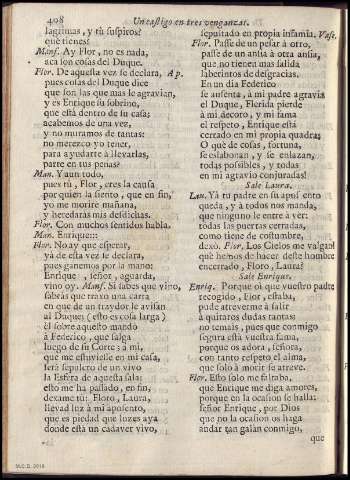 408
Un castigo en tres venganzas.
lagrimas, y tu suspiros?
què tienes?
Mans. Ay Flor, no es nada,
acà son cosas del Duque.
Flor. De aquesta vez se declara, Ap.
pues cosas del Duque dice
que son las que mas le agravian,
y es Enrique su sobrino,
que està dentro de su casa;
acabemos de una vez,
y no muramos de tantas:
no merezco yo tener,
para ayudarte à llevarlas,
parte en tus penas?
Man. Y aun todo,
pues tù, Flor, eres la causa
por quien la siento, y que en fin,
yo me morire mañana,
y heredaràs mis desdichas.
Flor. Con muchos sentidos habla.
Man. Enrique::
Flor. No ay que esperar,
yà de esta vez se declara,
pues ganemos por la mano:
Enrique, señor, aguarda,
vino oy. Mans. Si sabes que vino,
sabràs que traxo una carta
en que de un traydor le avisan
al Duque: (esto es cosa larga)
èl sobre aquesto mandò
à Federico, que salga
luego de su Corte; à mi,
que me estuviesse en mi casa,
serà sepulcro de un vivo
la Esfera de aquesta sala;
esto me ha passado, en fin,
dexame tù: Floro, Laura,
llevad luz à mi aposento,
que es piedad que luzes aya
donde està un cadaver vivo,
sepultado en propia infamia. Vase.
Flor. Passe de un pesar à otro,
passe de un ansia à otra ansia,
que no tienen mas salida
laberintos de desgracias.
En un dia Federico
se ausenta, à mi padre agravia
el Duque, Flerida pierde
à mi decoro, y mi fama
el respeto, Enrique està
cerrado en mi propia quadra;
O què de cosas, fortuna,
se eslabonan, y se enlazan,
todas possibles, y todas
en mi agravio conjuradas!
Sale Laura.
Lau. Yà tu padre en su aposento
queda, y à todos nos manda,
que ninguno le entre à vèr:
todas las puertas cerradas,
como tiene de costumbre,
dexò. Flor. Los Cielos me valgan!
què hemos de hacer deste hombre
encerrado, Floro, Laura?
Sale Enrique.
Enriq. Porque oì que vuestro padre
recogido, Flor, estaba,
pude atreverme à salir
à quitaros dudas tantas:
no temais, pues que conmigo
segura està vuestra fama,
porque os adora, señora,
con tanto respeto el alma,
que solo à morir se atreve.
Flor. Esto solo me faltaba,
que Enrique me diga amores,
porque en la ocasion se halla:
señor Enrique, por Dios
que no la ocasion os haga
andar tan galan conmigo,
que